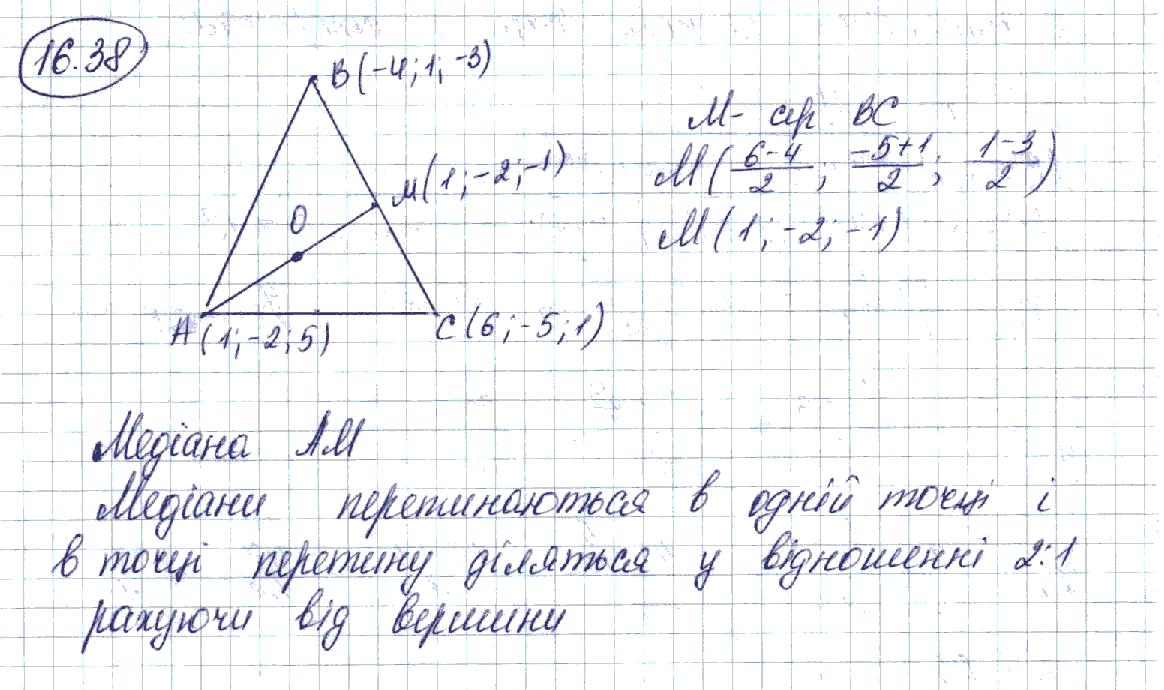 16.38
B(-4;1;-3)
M- сер BC
M(6-4/2; -5+1/2; 1-3/2)
M(1;-2;-1)
M(1;-2;-1)
O
A(1;-2;5)
C(6;-5;1)
Медіана AM
Медіани перетинаються в одній точці і
в точці перетину діляться у відношенні 2:1
рахуючи від вершини